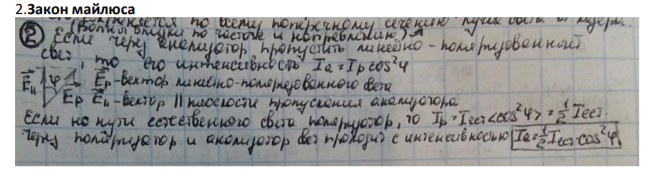 2.Закон майлюса
распространяется по всему поперечному сечению пучка света и лазера.
(волны близки по частоте и направлению)
② Если через анализатор пропустить линейно-поляризованный
свет, то его интенсивность Iа = Iр cos²φ
E⃗и φ E⃗р-вектор линейно-поляризованного света
E⃗р E⃗и-вектор || плоскости пропускания анализатора
Если на пути естественного света поляризатор, то Iр = Iест<cos²φ> = ½ Iест.
Через поляризатор и анализатор свет проходит с интенсивностью Iа = ½ Iест cos²φ